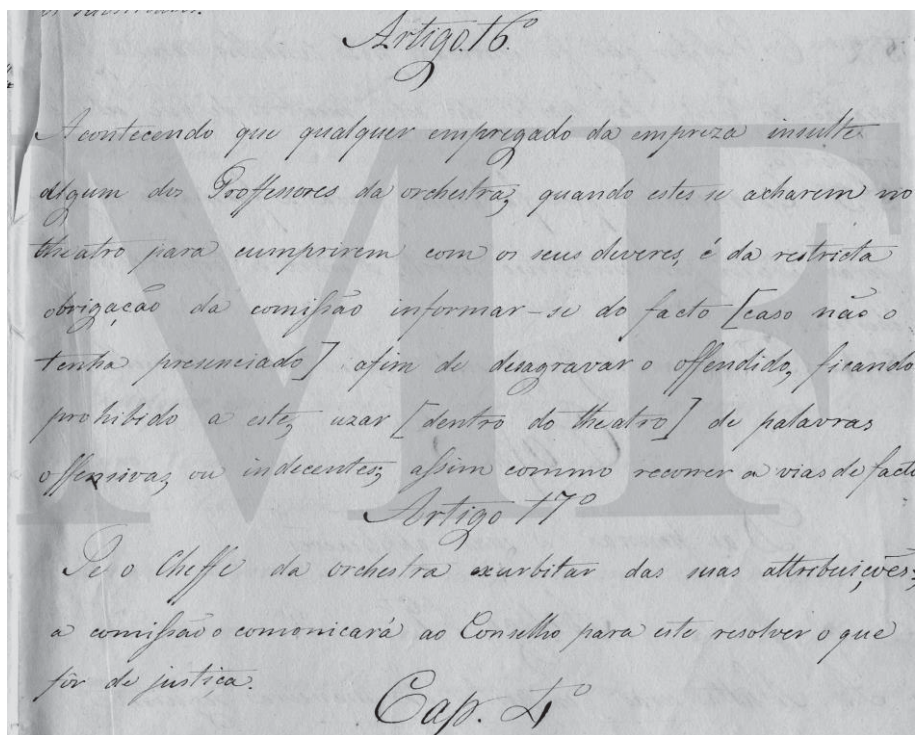 Artigo 16º
Acontecendo que qualquer empregado da empreza insulte
algum dos Proffessores da orchestra, quando estes se acharem no
theatro para cumprirem com os seus deveres, é da restricta
obrigação da comissão informar-se do facto [caso não o
tenha presenciado] afim de desagravar o offendido, ficando
prohibido a este, uzar [dentro do theatro] de palavras
offensivas, ou indecentes, assim commo recorrer a vias de facto
Artigo 17º
Se o Cheffe da orchestra exurbitar das suas attribuições,
a comissão o comonicará ao Conselho para este resolver o que
fôr de justiça.
Cap. 4º
MF